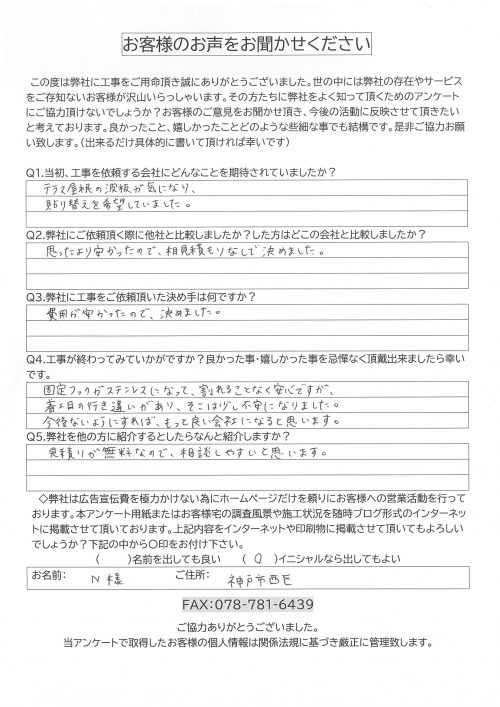 お客様のお声をお聞かせください
この度は弊社に工事をご用命頂き誠にありがとうございました。世の中には弊社の存在やサービス
をご存知ないお客様が沢山いらっしゃいます。その方たちに弊社をよく知って頂くためのアンケート
にご協力頂けないでしょうか？お客様のご意見をお聞かせ頂き、今後の活動に反映させて頂きたい
と考えております。良かったこと、嬉しかったことどのような些細な事でも結構です。是非ご協力お願
い致します。（出来るだけ具体的に書いて頂ければ幸いです）
Q1.当初、工事を依頼する会社にどんなことを期待されていましたか？
テラス屋根の波板が気になり、
貼り替えを希望していました。
Q2.弊社にご依頼頂く際に他社と比較しましたか？した方はどこの会社と比較しましたか？
思ったより安かったので、相見積もりなしで決めました。
Q3.弊社に工事をご依頼頂いた決め手は何ですか？
費用が安かったので、決めました。
Q4.工事が終わってみていかがですか？良かった事・嬉しかった事を忌憚なく頂戴出来ましたら幸い
です。
固定フックがステンレスになって、割れることなく安心ですが、
着工日の行き違いがあり、そこは少し不安になりました。
今後ないようにすれば、もっと良い会社になると思います。
Q5.弊社を他の方に紹介するとしたらなんと紹介しますか？
見積りが無料なので、相談しやすいと思います。
◇弊社は広告宣伝費を極力かけない為にホームページだけを頼りにお客様への営業活動を行って
おります。本アンケート用紙またはお客様宅の調査風景や施工状況を随時ブログ形式のインターネッ
トに掲載させて頂いております。上記内容をインターネットや印刷物に掲載させて頂いてもよろしい
でしょうか？下記の中から〇印をお付け下さい。
（　　）名前を出しても良い　（ 〇 ）イニシャルなら出してもよい
お名前： N 様　ご住所： 神戸市西区
FAX：078-781-6439
ご協力ありがとうございました。
当アンケートで取得したお客様の個人情報は関係法規に基づき厳正に管理致します。